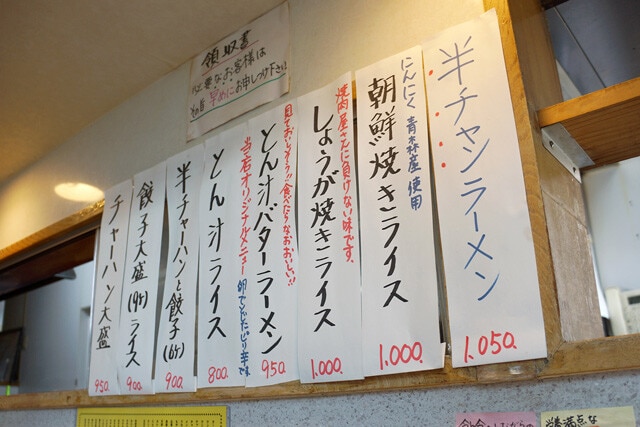 領収書
必要なお客様は
お早めにお申しつけ下さい
半チャンラーメン
1.050.
にんにく青森産使用
朝鮮焼きライス
1.000.
焼肉屋さんに負けない味です。
しょうが焼きライス
1.000.
見ておいしそう!!食べたらなおおいしい!!
とん汁バターラーメン
950
当店オリジナルメニュー
とん汁ライス
800
半チャーハンと餃子(6ヶ)
900
餃子大盛(9ヶ)ライス
900
チャーハン大盛
950